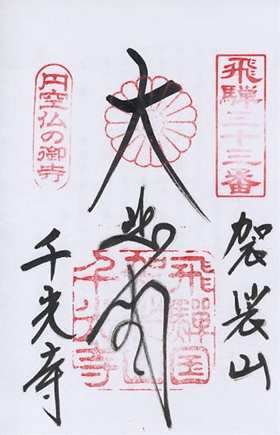 飛騨三十三番
袈裟山
大悲
飛騨国
袈裟山
千光寺
円空仏の御寺
千光寺